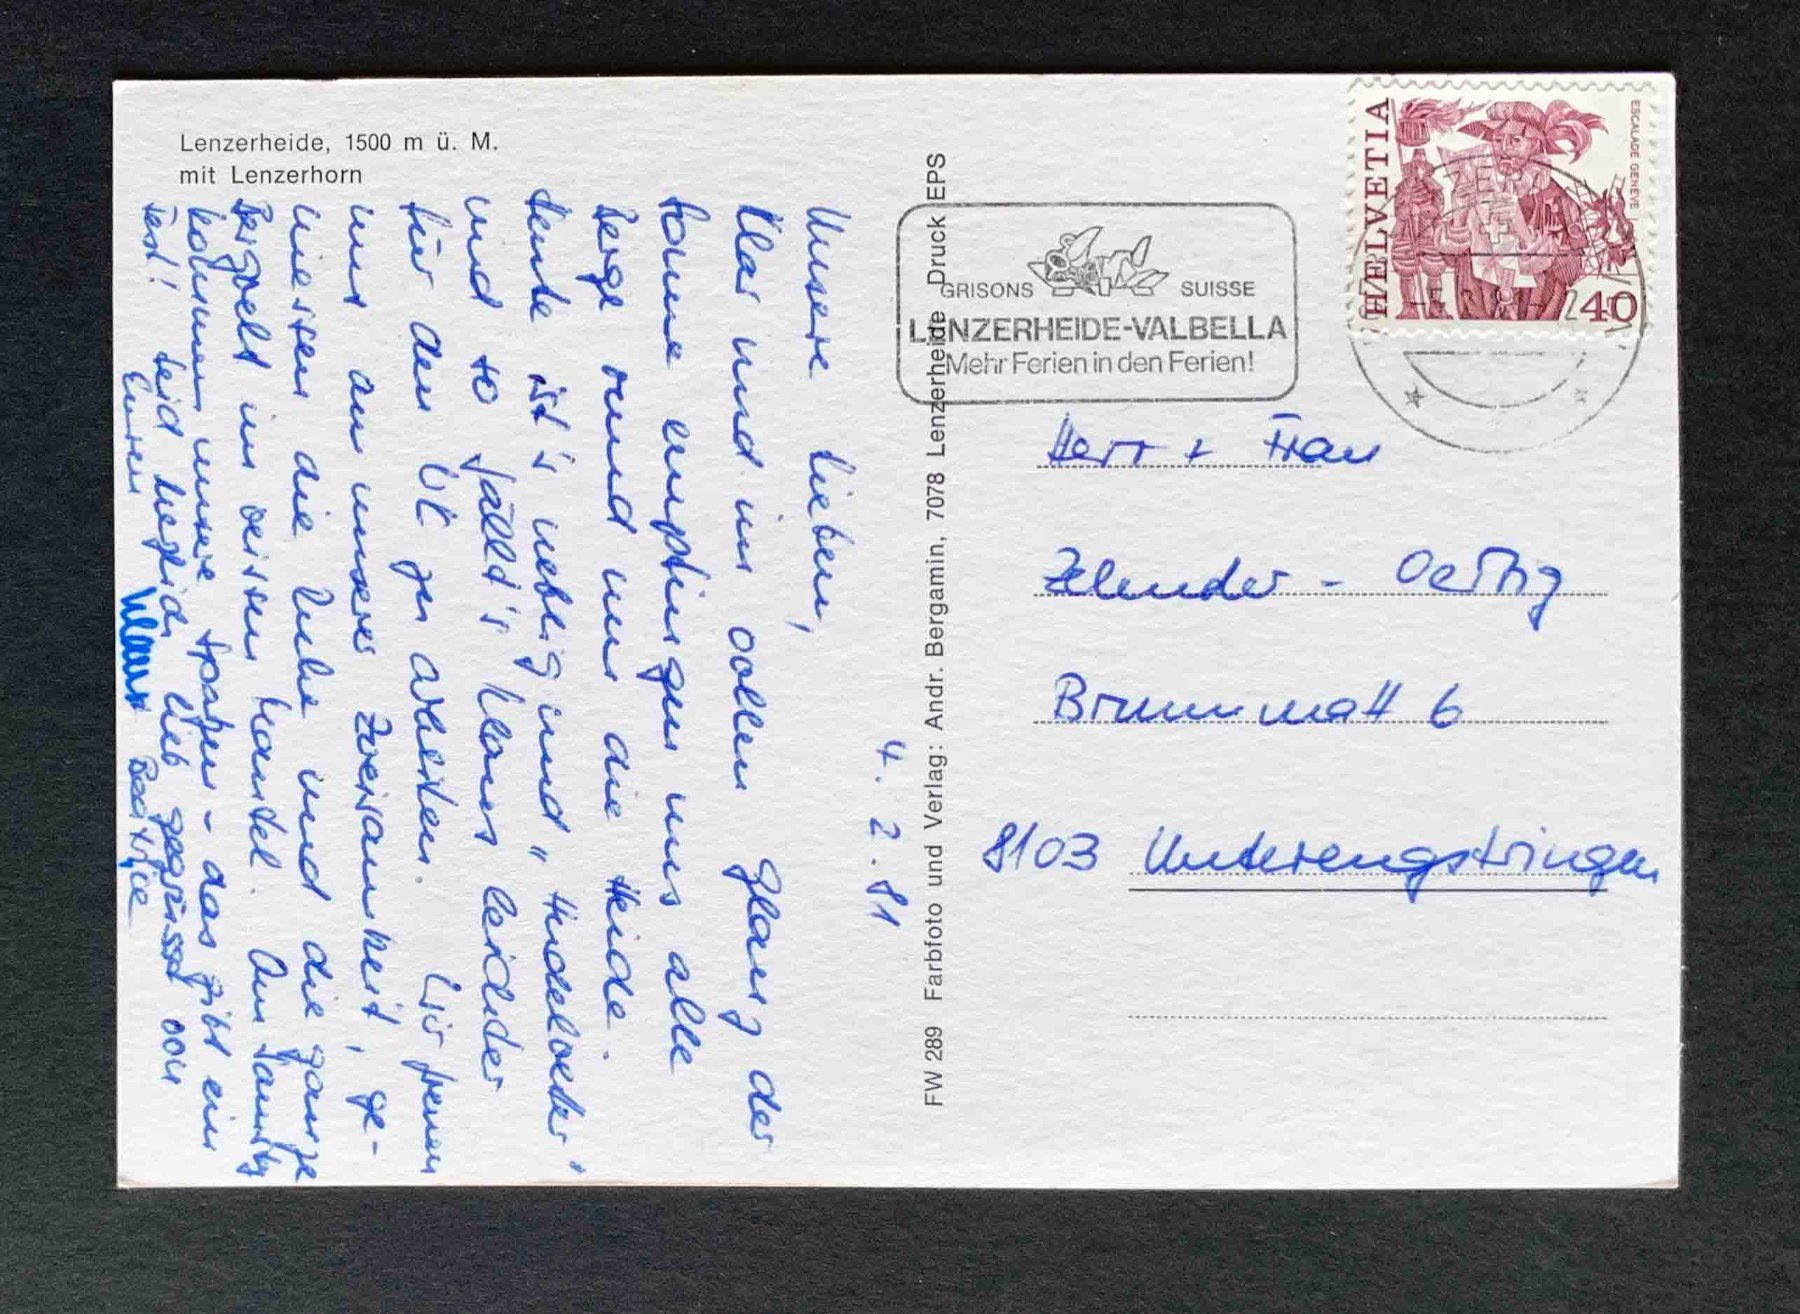 Lenzerheide, 1500 m ü. M.
mit Lenzerhorn
4. 2. 81
Unsere Lieben,
Klar und im vollen Glanz der
Sonne empfingen uns alle
Berge rund um die Heide.
Heute ist's neblig und "hudelwetter"
und so fällt's Klaus leichter
für den ÜK zu arbeiten. Wir freuen
uns an unserer Zweisamkeit, ge-
niessen die Ruhe und die ganze
Bergwelt im weissen Mantel. Am Samstag
kommen unsere Spatzen - das gibt ein
Fest! Seid begleitet lieb gegrüsst von
Euren Klaus Beatrice
FW 289 Farbfoto und Verlag: Andr. Bergamin, 7078 Lenzerheide Druck EPS
GRISONS SUISSE
LENZERHEIDE-VALBELLA
Mehr Ferien in den Ferien!
HELVETIA
ESCALADE GENEVE
40
Herr + Frau
Zehnder - Oertig
Brunnmatt 6
8103 Unterengstringen